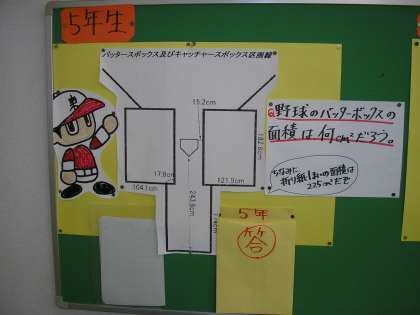 5年生
バッタースボックス及びキャッチャースボックス区画線
15.2cm
182.8cm
17.8cm
121.9cm
104.1cm
243.8cm
Q野球のバッターボックスの
面積は何cm²だろう。
ちなみに
折り紙1まいの面積は
225cm²だで
5年
答